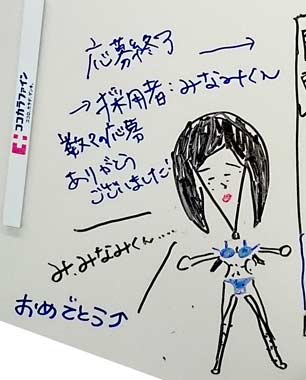 応募終了 →
→採用者:みなみくん
数々の応募
ありがとう
ございました!
み、みなみくん.....
おめでとう
ココカラファイン